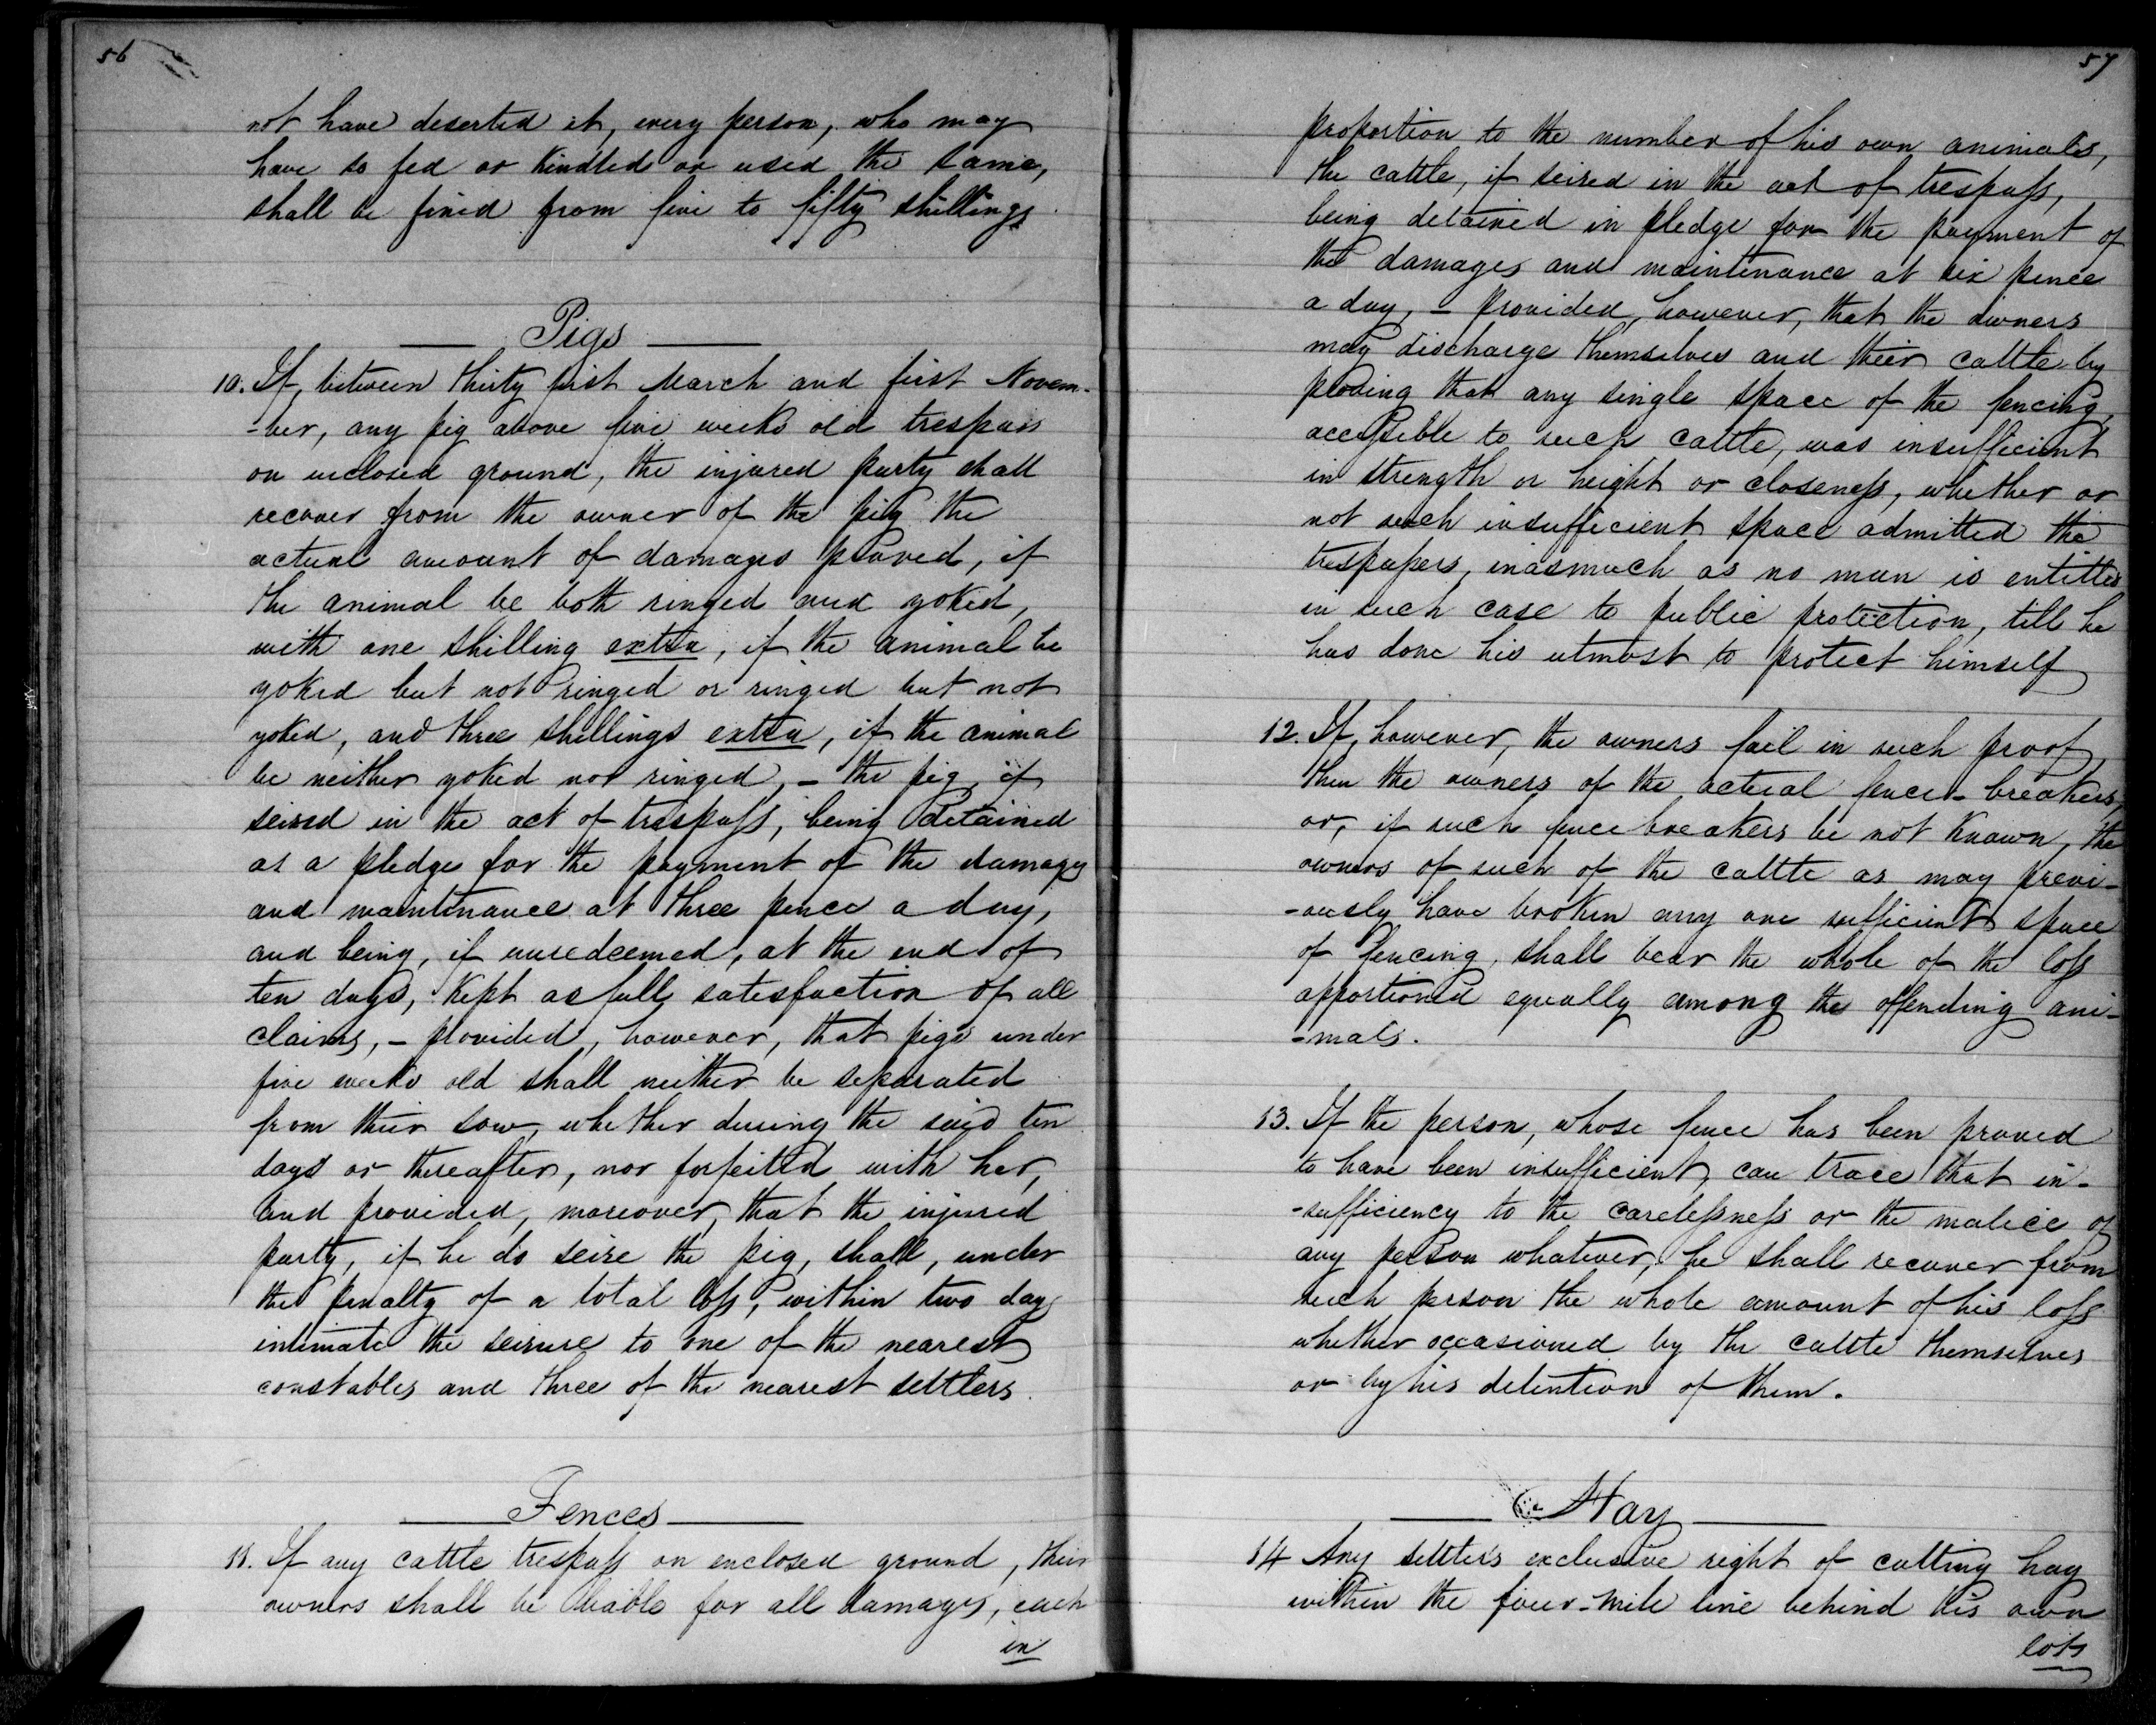 56
not have deserted it, every person, who may
have so fed or kindled or used the same,
shall be fined from five to fifty shillings
Pigs
10. If, between thirty first March and first Novem-
-ber, any pig above five weeks old trespass
on inclosed ground, the injured party shall
recover from the owner of the pig the
actual amount of damages proved, if
the animal be both ringed and yoked,
with one shilling extra, if the animal be
yoked but not ringed or ringed but not
yoked, and three shillings extra, if the animal
be neither yoked nor ringed, - the pig, if
seized in the act of trespass, being detained
as a pledge for the payment of the damages
and maintenance at three pence a day,
and being, if unredeemed, at the end of
ten days, kept as full satisfaction of all
claims, - provided, however, that pigs under
five weeks old shall neither be separated
from their sow, whether during the said ten
days or thereafter, nor forfeited with her,
and provided, moreover, that the injured
party, if he do seize the pig, shall, under
the penalty of a total loss, within two days
intimate the seizure to one of the nearest
constables and three of the nearest settlers.
Fences
11. If any cattle trespass on enclosed ground, their
owners shall be liable for all damages, each
in
57
proportion to the number of his own animals,
the cattle, if seized in the act of trespass,
being detained in pledge for the payment of
the damages and maintenance at six pence
a day, - provided, however, that the owners
may discharge themselves and their cattle by
proving that any single space of the fencing,
accessible to such cattle, was insufficient
in strength or height or closeness, whether or
not such insufficient space admitted the
trespassers, inasmuch as no man is entitled
in such case to public protection, till he
has done his utmost to protect himself
12. If, however, the owners fail in such proof,
then the owners of the actual fence-breakers,
or, if such fence breakers be not known, the
owners of such of the cattle as may previ-
-ously have broken any one sufficient space
of fencing, shall bear the whole of the loss
apportioned equally among the offending ani-
-mals.
13. If the person, whose fence has been proved
to have been insufficient, can trace that in-
-sufficiency to the carelessness or the malice of
any person whatever, he shall recover from
such person the whole amount of his loss
whether occasioned by the cattle themselves
or by his detention of them.
Hay
14 Any settler's exclusive right of cutting hay
within the four-mile line behind his own
lots